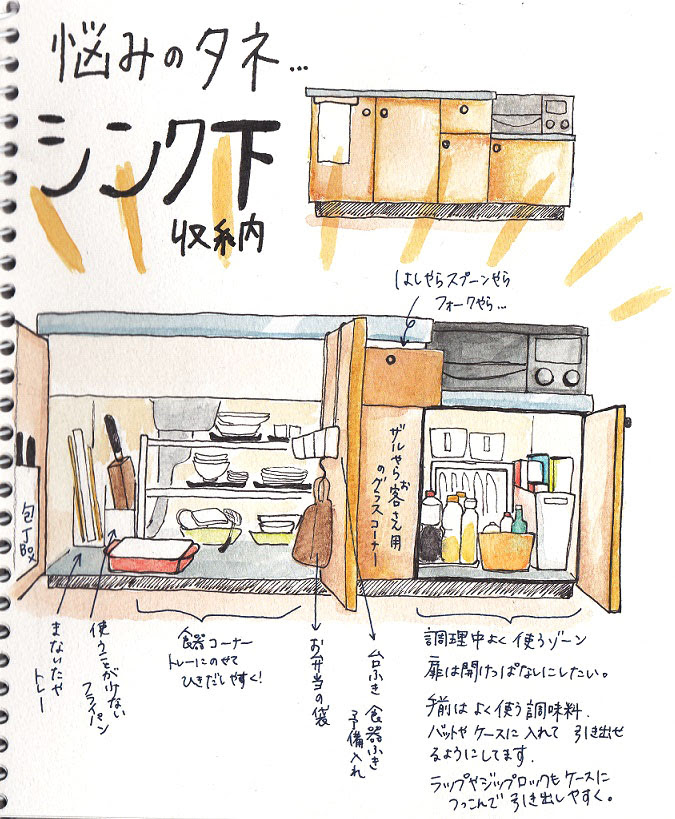 悩みのタネ...
シンク下
収納内
はしやらスプーンやら
フォークやら...
ザルやら
お客さん用
のグラスコーナー
包丁BOX
まないたや
トレー
使うことが少ない
フライパン
食器コーナー
トレーにのせて
ひきだしやすく!
お弁当の袋
台ふき 食器ふき
予備入れ
調理中よく使うゾーン
扉は開けっぱなしにしたい。
手前はよく使う調味料.
バットやケースに入れて 引き出せ
るようにしてます.
ラップやジップロックもケースに
つっこんで 引き出しやすく。